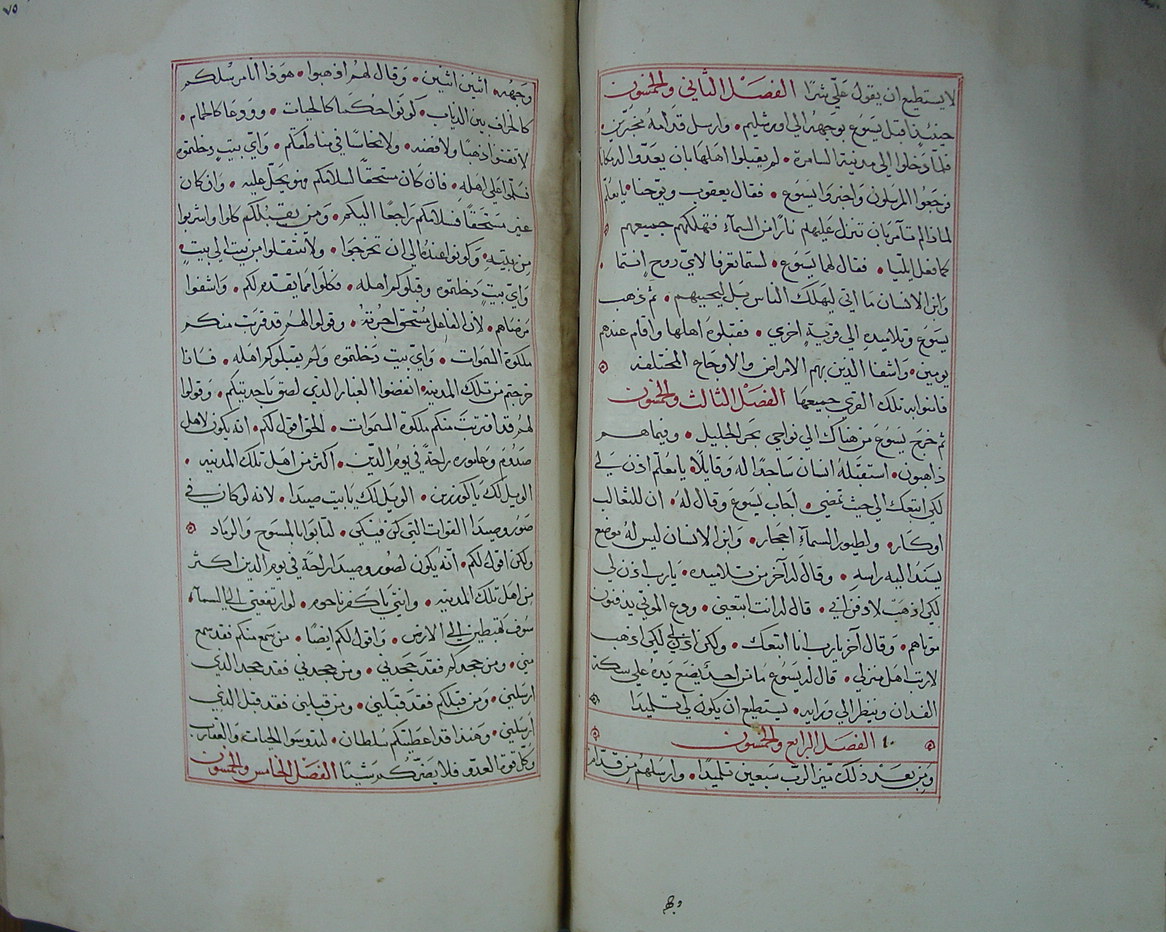 لا يستطيع ان يقول علي شرًا الفصل الثاني والخمسون
حينيذ اقبل يسوع بوجهه الى اورشليم • وارسل قدامه مخبرين •
فلما دخلوا الى مدينة السامرة • لم يقبلوا اهلها بان يعدّوا له مكانا
فرجعوا المرسلون واخبروا يسوع • فقال يعقوب ويوحنا • يا معلم
لماذا لم تامر بان تنزل عليهم نارًا من السمآء فتهلكهم جميعهم
كما فعل ايليا • فقال لهما يسوع • لستما تعرفا لاي روح انتما •
وابن الانسان ما اتى ليهلك الناس بل ليحييهم • ثم ذهب
يسوع وتلاميذه الى قرية اخرى • فقبلوه اهلها واقام عندهم
يومين • واشفا الذين بهم الامراض والاوجاع المختلفه
فامنوا به تلك القرى جميعها الفصل الثالث والخمسون
ثم خرج يسوع من هناك الى نواحي بحر الجليل • وفيما هم
ذاهبون • استقبله انسان ساجدًا له وقايلًا • يا معلم اذن لي
لكي اتبعك الى حيث تمضي • اجاب يسوع وقال له • ان للثعالب
اوكار • ولطيور السمآء احجار • وابن الانسان ليس له موضع
يسند اليه راسه • وقال له آخر من تلاميذه • يا رب اذن لي
لكي اذهب لادفن ابي • قال له انت اتبعني • ودع الموتى يدفنون
موتاهم • وقال آخر يا رب انا اتبعك • ولكن اذن لي لكي اذهب
لارتب اهل منزلي • قال له يسوع ما من احد يضع يده على سكة
الفدان وينظر الى ورايه • يستطيع ان يكون لي تلميذا
١٠ الفصل الرابع والخمسون
ومن بعد ذلك ميز الرب سبعين تلميذا • وارسلهم من قدام
وبه
٧٥
وجهه اثنين اثنين • وقال لهم اذهبوا • هوذا انا مرسلكم
كالخراف بين الدياب • كونوا حكما كالحيات • وودعا كالحمام •
لا تقتنوا ذهبا ولا فضه • ولا نحاسًا في مناطقكم • واي بيت دخلتموه
فسلموا على اهله • فان كان مستحقًا لسلامكم فهو يحل عليه • وان كان
غير مستحقًا فسلامكم راجعًا اليكم • ومن يقبلكم كلوا واشربوا
من بيته • وكونوا عنده الى ان تخرجوا • ولا تنتقلوا من بيت الى بيت •
واي بيت دخلتموه وقبلوكم اهله • فكلوا مما يقدم لكم • واشفوا
مرضاهم • لان الفاعل مستحق اجرته • وقولوا لهم قد قربت منكم
ملكوة السموات • واي بيت دخلتموه ولم يقبلوكم اهله • فاذا
خرجتم من تلك المدينه • انفضوا الغبار الذي لصق باحديتكم • وقولوا
لهم قد اقتربت منكم ملكوة السموات • الحق اقول لكم • انه يكون لاهل
صدوم وعاموره راحةً في يوم الدين • اكثر من اهل تلك المدينه •
الويل لك يا كورزين • الويل لك يا بيت صيدا • لانه لو كان في
صور وصيدا القوات التي كن فيكي • لتابوا بالمسوح والرماد
ولكن اقول لكم • انه يكون لصور وصيدا راحةً في يوم الدين اكثر
من اهل تلك المدينه • وانتي يا كفرناحوم • لو ارتفعتي الى السمآء
سوف تهبطين الى الارض • واقول لكم ايضًا • من سمع منكم فقد سمع
مني • ومن جحدكم فقد جحدني • ومن جحدني فقد جحد الذي
ارسلني • ومن قبلكم فقد قبلني • ومن قبلني فقد قبل الذي
ارسلني • وهنذا قد اعطيتكم سلطان • لتدوسوا الحيات والعقارب
وكل قوة العدو فلا يضركم شيئا الفصل الخامس والخمسون